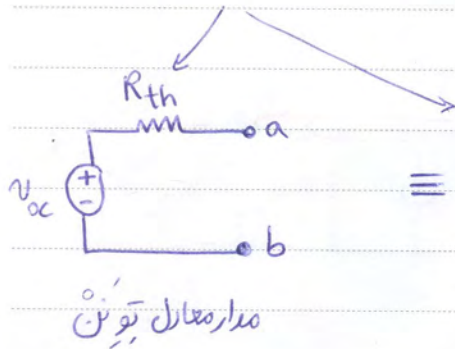 R_th
a
+
-
v_oc
≡
b
مدار معادل تونن